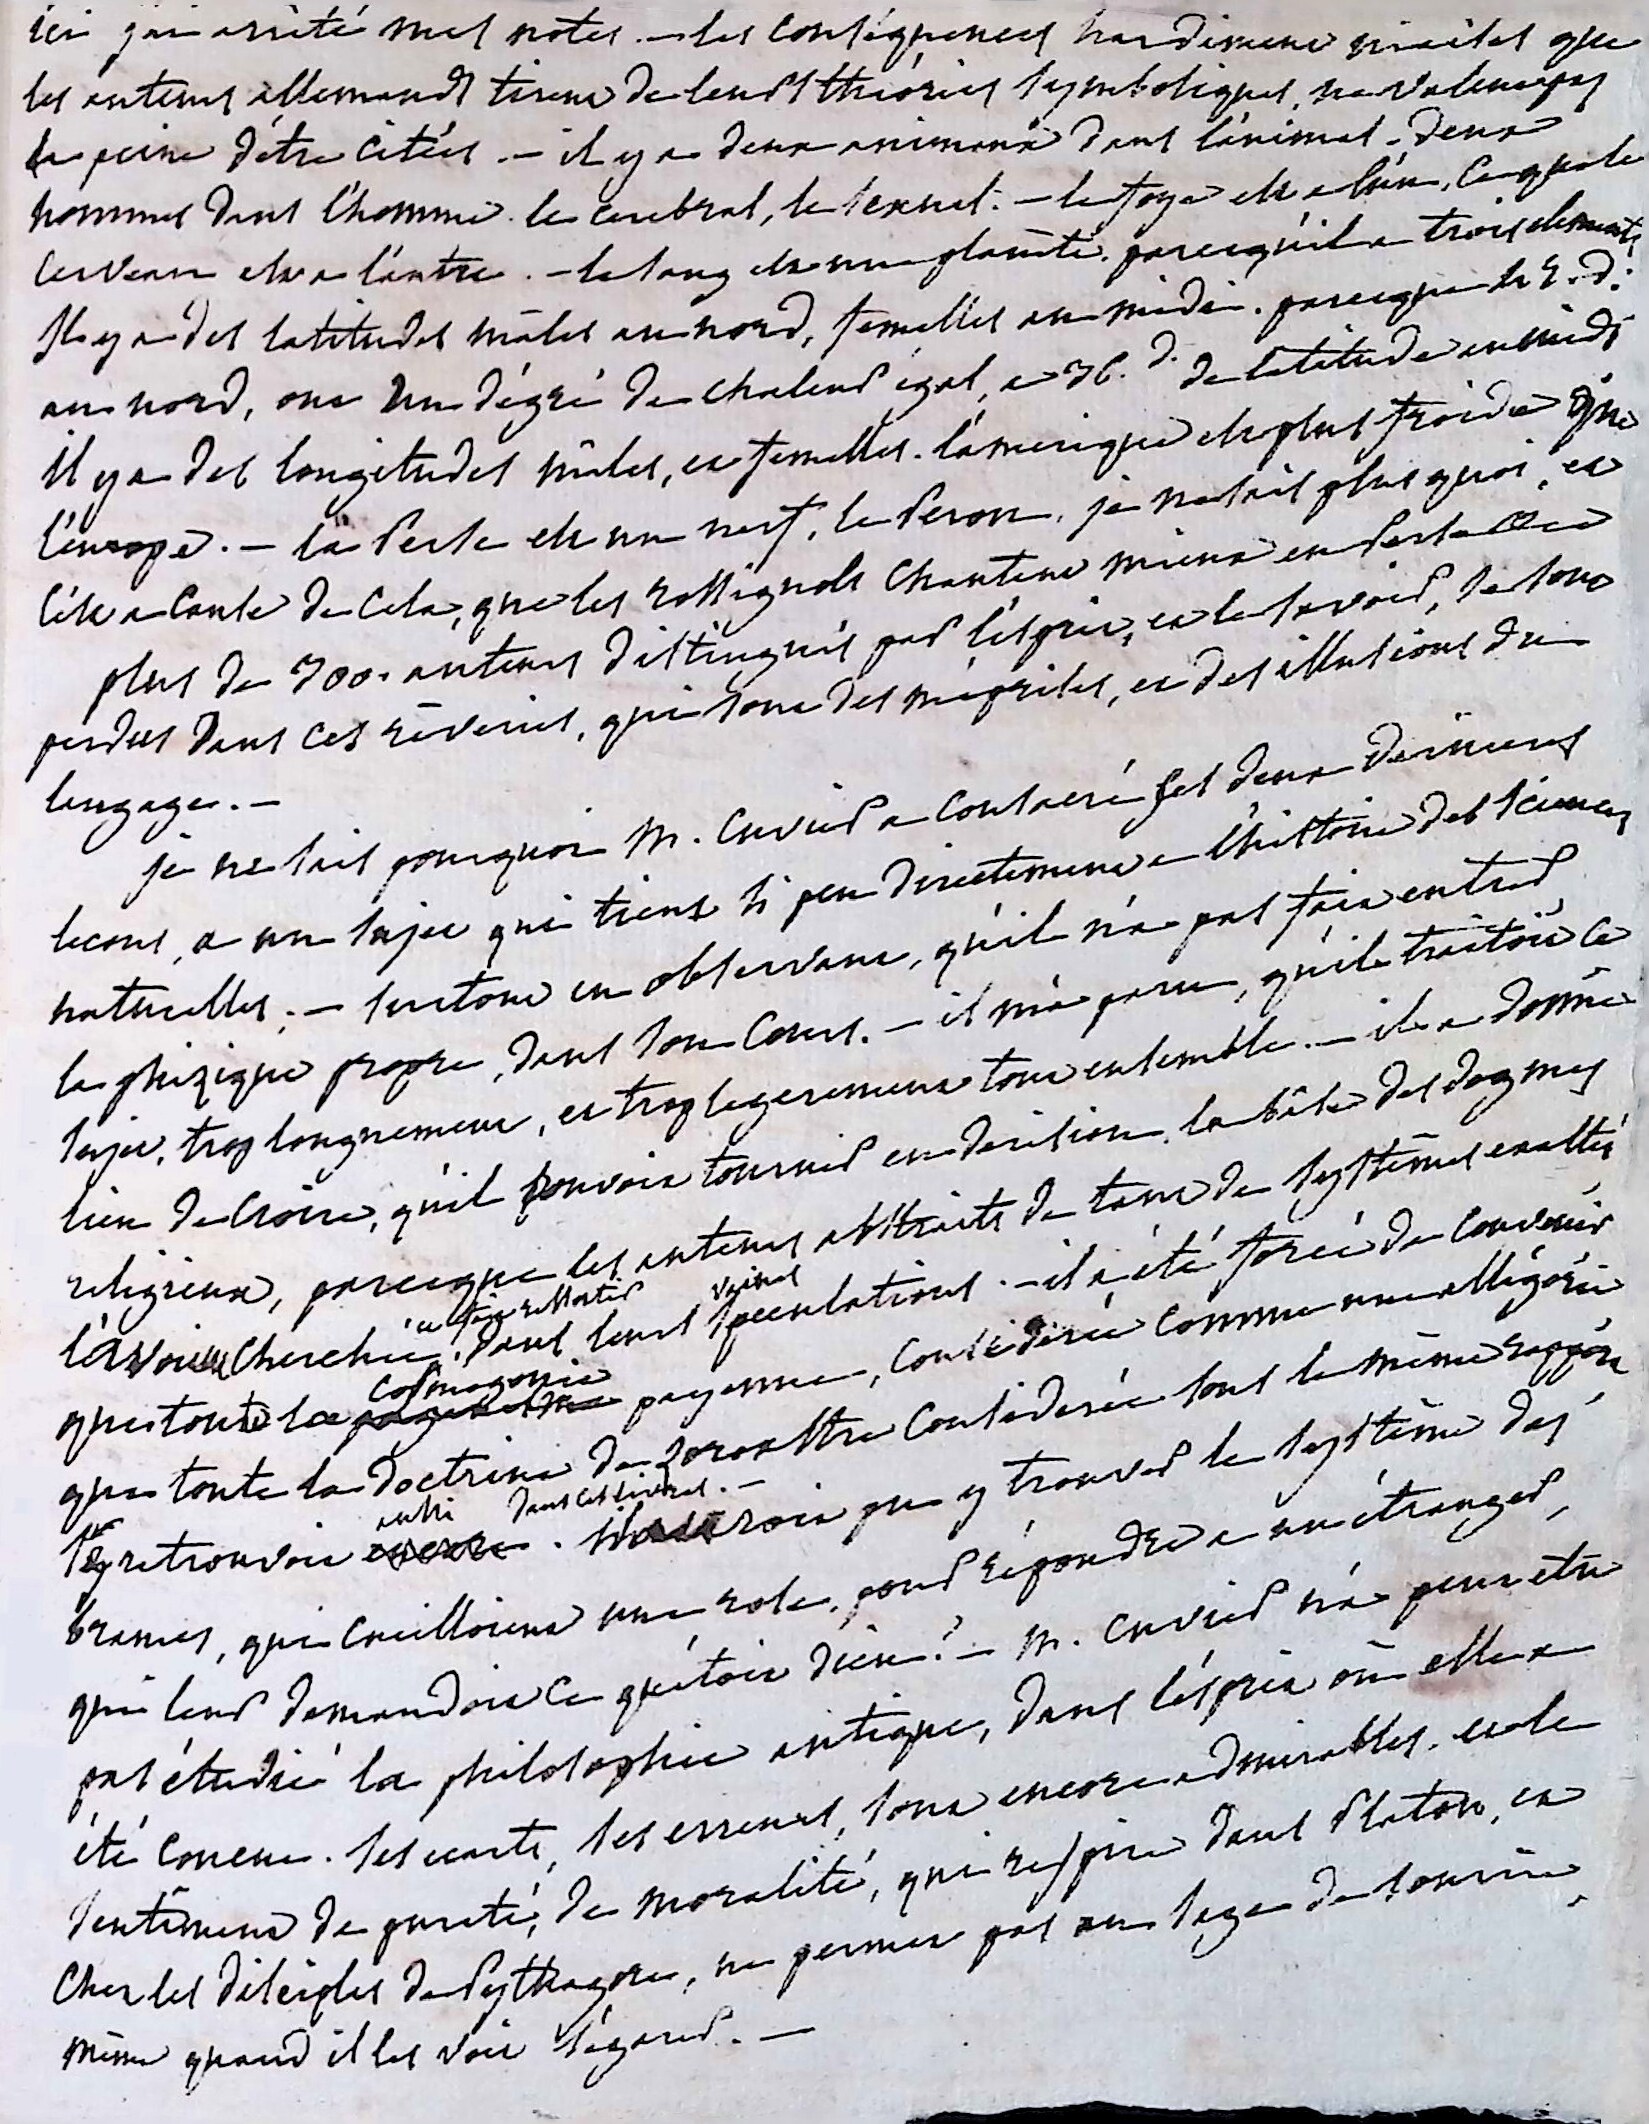 ici j'ai arrêté mes notes. — les conséquences hardiment niaises que
les auteurs allemands tirent de leurs théories symboliques, ne valent pas
la peine d'étre citées. — il y a deux animaux dans l'animal. deux
hommes dans l'homme. le cerebral, le sexuel. — le foye est a l'un, ce que le
cerveau est a l'autre. — le sang est une planète. parcequ'il a trois elements
Il y a des latitudes mâles au nord, femelles au midi. parceque
au nord, ont un dégré de chaleur égal, a 36. d. de latitude au midi
il y a des longitudes mâles, et femelles. l'amerique est plus froide que
l'europe. — la Perse est un nerf, le Perou, je ne sais plus quoi, et
c'est a cause de cela, que les rossignols chantent mieux en Perse
plus de 300. auteurs distingués par l'esprit, et le savoir, se sont
perdus dans ces rêveries, qui sont des méprises, et des illusions du
langage. —
je ne sais pourquoi M. Cuvier a consacré ses deux dernieres
lecons, a un sujet qui tient si peu directement a l'histoire des sciences
naturelles; — surtout en observant, qu'il n'a pas fait entrer
la phizique propre, dans son Cours. — il m'a paru, qu'il traitoit ce
sujet, trop longuement, et trop legerement tout ensemble. — il a donné
lieu de croire, qu'il pouvoit tourner en derision, la bâse des dogmes
religieux, parceque les auteurs abstraits de tant de systêmes exaltés
et fait ressortir vaines
l'avoient cherchée, dans leurs speculations. — il a été forcé de convenir
cosmogonie
que toute la payenne, considerée comme une allégorie
que toute la doctrine de Zoroastre considerée sous le même rapport
aussi dans ces livres. —
s'y retrouvoit encore. pu y trouver le systême des
brames, qui cueilloient une rose, pour répondre a un étranger,
qui leur demandoit ce qu'étoit dieu. — M. Cuvier n'a peut etre
pas étudié la philosophie antique, dans l'esprit où elle a
été concue. ses ecarts, ses erreurs, sont encore admirables. et le
sentiment de pureté, de moralité, qui respire dans Platon, et
chez les disciples de Pythagore, ne permet pas au sage de sourire,
même quand il les voit s'égarer. —